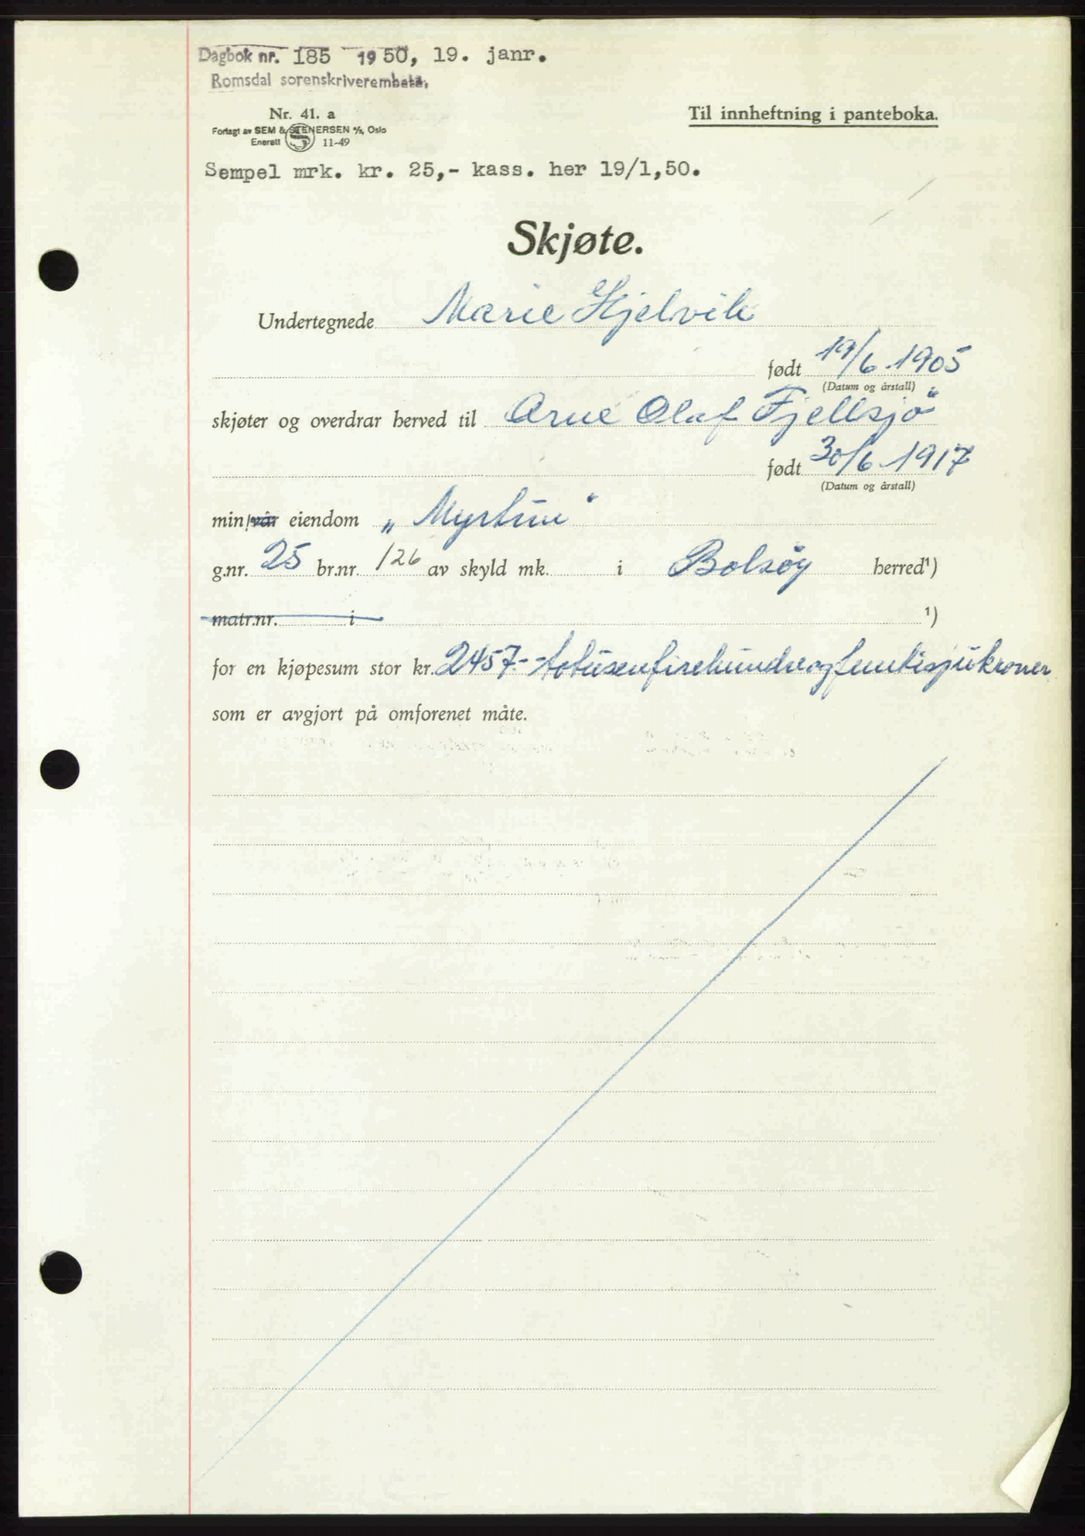 Dagbok nr. 185 1950, 19. janr.
Romsdal sorenskriverembete,
Nr. 41. a
Forlagt av SEM & STENERSEN A/S, Oslo
Enerett 11-49
Til innheftning i panteboka.
Sempel mrk. kr. 25,- kass. her 19/1,50.
Skjøte.
Undertegnede Marie Hjelvik
født 19/6 1905
(Datum og årstall)
skjøter og overdrar herved til Arne Olaf Fjellsjö
født 30/6 1917
(Datum og årstall)
min/vår eiendom „Myrtun"
g.nr. 25 br.nr. 126 av skyld mk. i Bolsøy herred¹)
matr.nr. i ¹)
for en kjøpesum stor kr. 2457.-- totusenfirehundreogfemtisjukroner
som er avgjort på omforenet måte.